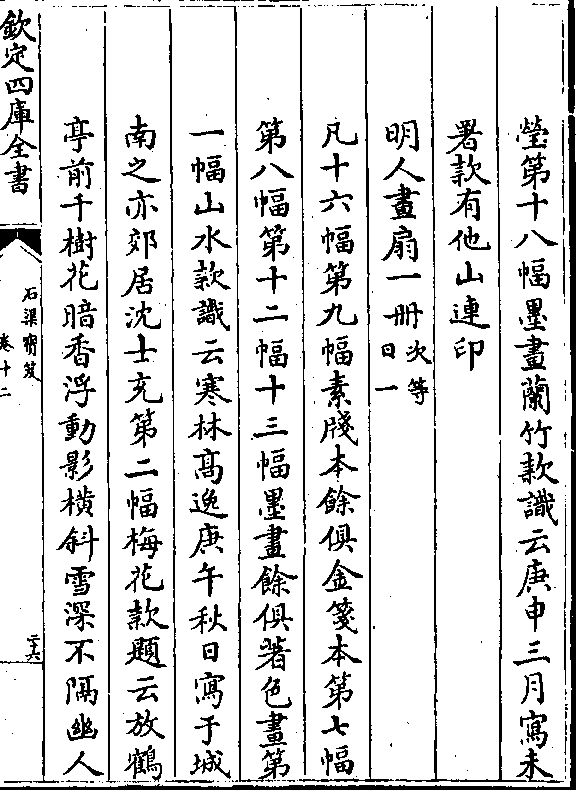 瑩第十八幅墨畫蘭竹款識云庚申三月寫未
署款有他山連印
明人畫扇一册次等日一
凡十六幅第九幅素牋本餘俱金箋本第七幅
第八幅第十二幅十三幅墨畫餘俱著色畫第
一幅山水款識云寒林高逸庚午秋日寫于城
南之亦郊居沈士充第二幅梅花款題云放鶴
亭前千樹花暗香浮動影橫斜雪深不隔幽人
欽定四庫全書
石渠寶笈
卷十二
二十六